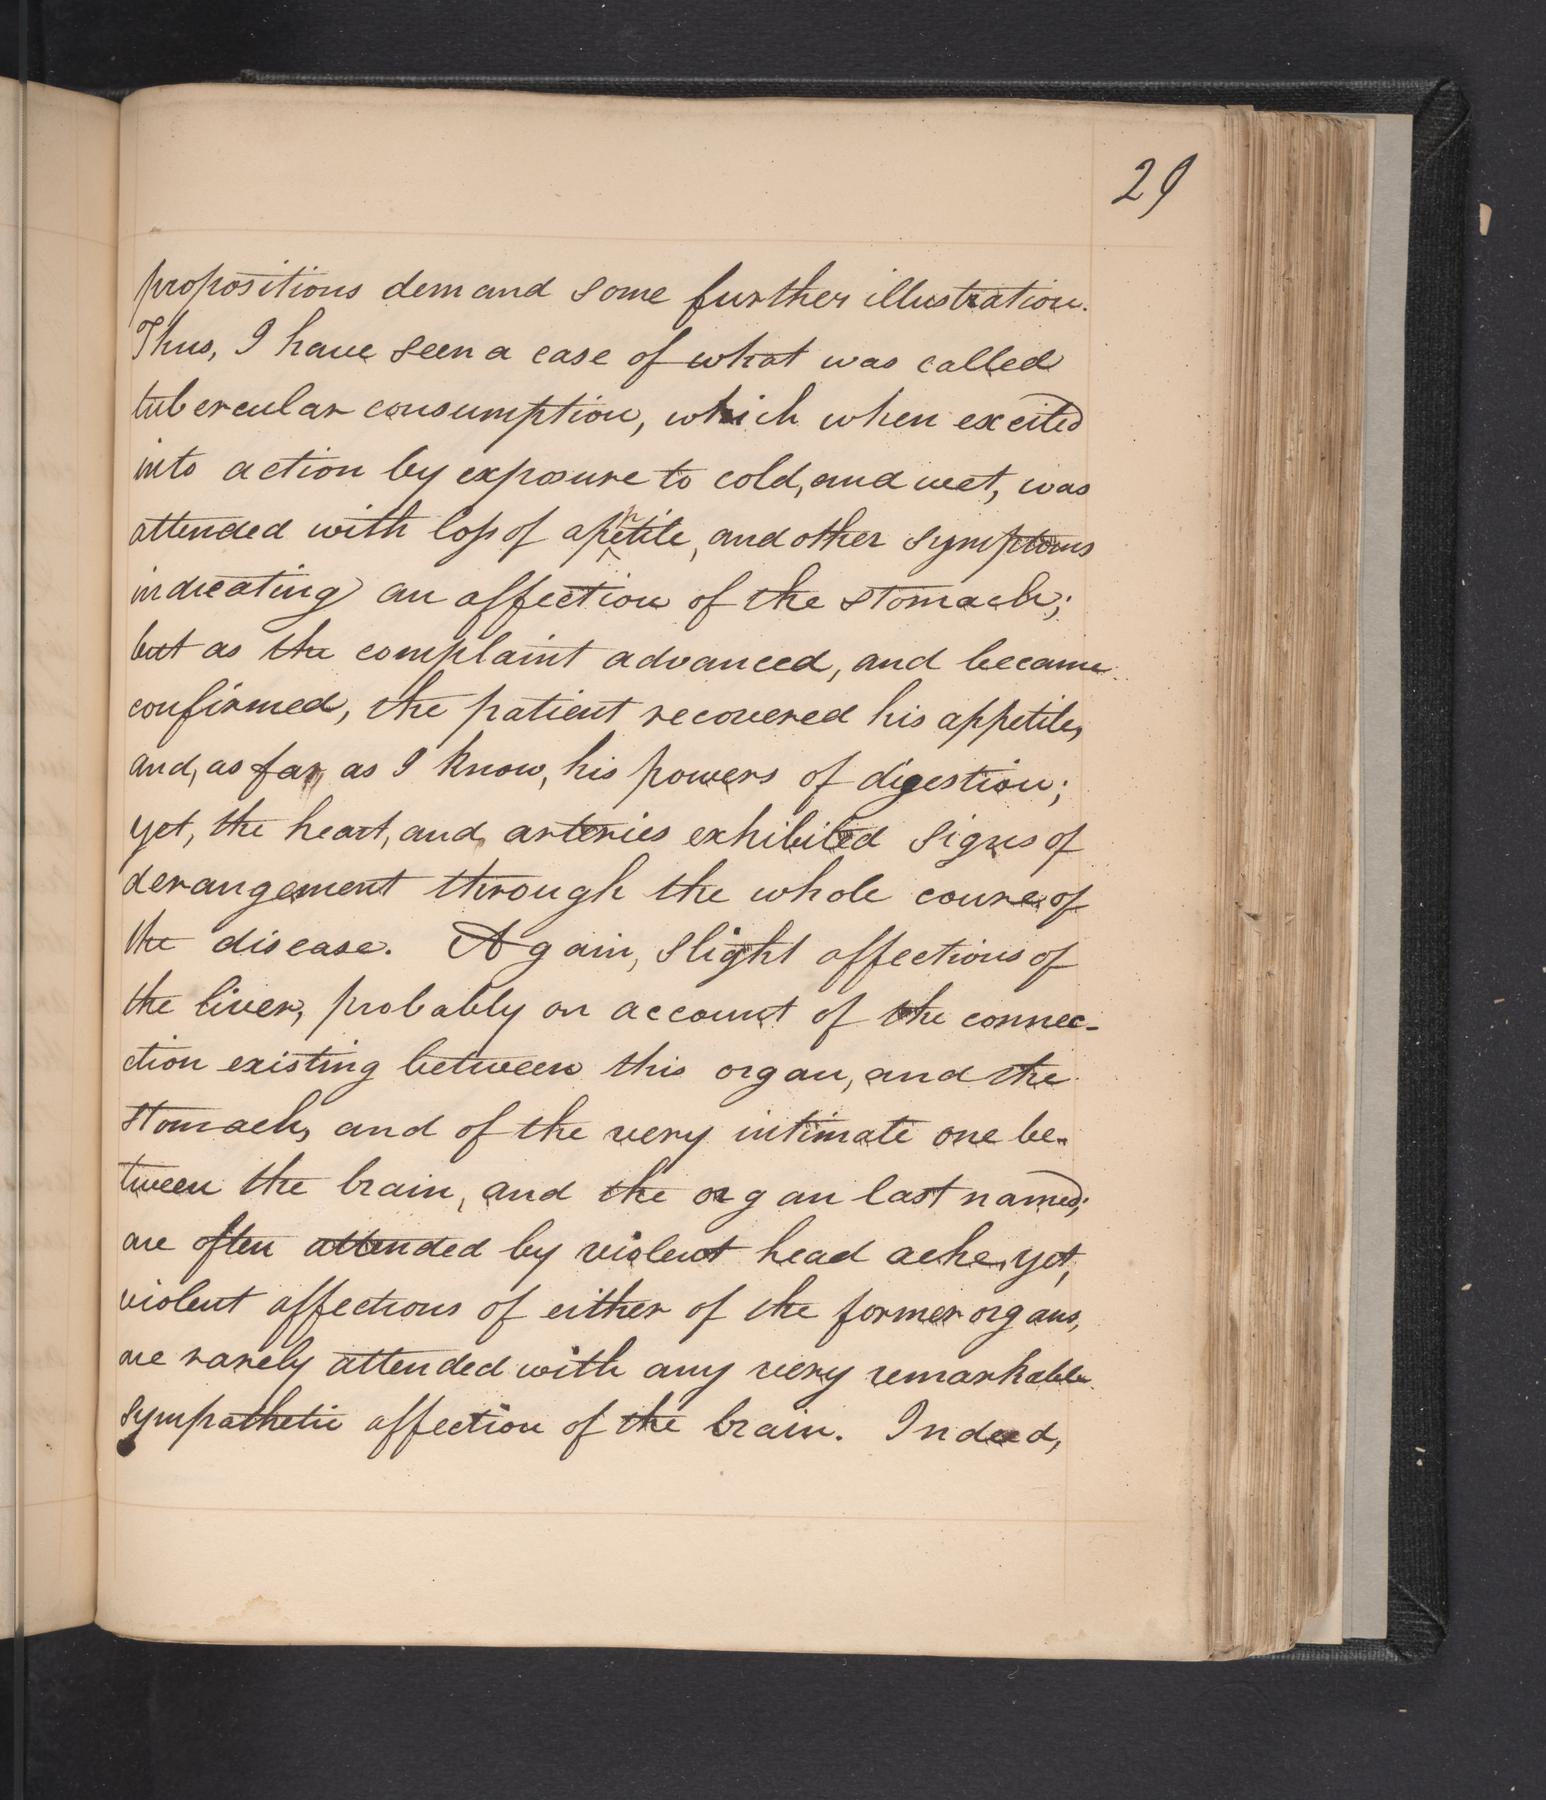 29
propositions demand some further illustration.
Thus, I have seen a case of what was called
tubercular consumption, which when excited
into action by exposure to cold, and wet, was
attended with loss of appetite, and other symptoms
indicating an affection of the stomach;
but as the complaint advanced, and became
confirmed, the patient recovered his appetite,
and, as far as I know, his powers of digestion;
yet, the heart, and arteries exhibited signs of
derangement through the whole course of
the disease. Again, slight affections of
the liver, probably on account of the connec-
ction existing between this organ, and the
stomach, and of the very intimate one be-
tween the brain, and the organ last named;
are often attended by violent head ache, yet,
violent affections of either of the former organs,
are rarely attended with any very remarkable
sympathetic affection of the brain. Indeed,